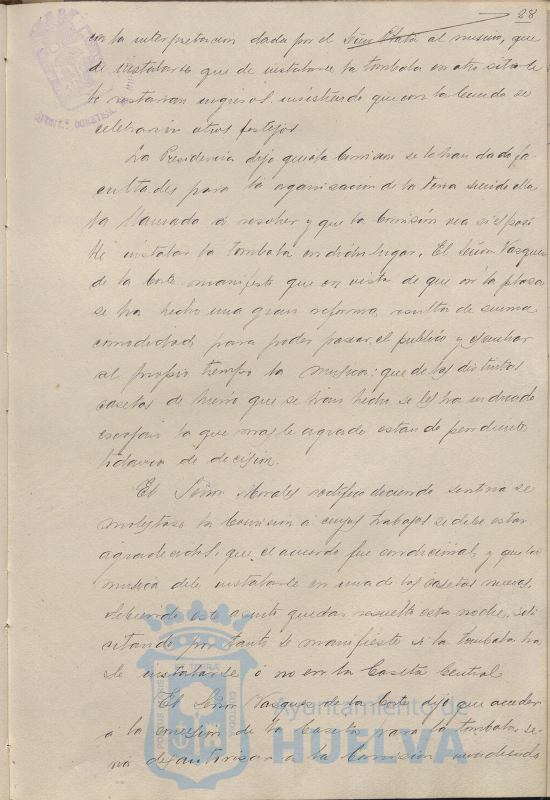 28
con la interpretacion dada por el Señor Plata al mismo, que
de instalarse que de instalarse la tombola en otro sitio le
restarian ingresos, insistiendo que con la banda se
celebrarian otros festejos.
La Presidencia dijo que á la Comision se le han dado fa
cultades para la organizacion de la Feria siendo ella
la llamada á resolver y que la Comisión vea si es posi
ble instalar la tombola en dicho lugar. El Señor Vazquez
de la Corte manifestó que en vista de que en la plaza
se ha hecho una gran reforma, resulta de suma
comodidad para poder pasear el público y escuchar
al propio tiempo la musica: que de las distintas
casetas de hierro que se han hecho se les ha indicado
escojan la que mas le agrade estando pendiente
todavia de decisión.
El Señor Morales rectificó diciendo sentiria se
molestase la Comision á cuyos trabajos se debe estar
agradecidos, que el acuerdo fue condicional y que la
musica debe instalarse en una de las casetas nuevas,
debiendo este asunto quedar resuelto esta noche, soli
citando por tanto se manifieste si la tombola ha
de instalarse ó no en la Caseta Central
El Señor Vazquez de la Corte dijo que acceder
á la concesion de la Caseta para la tombola se
ria desautorizar á la Comision
Ayuntamiento de
HUELVA